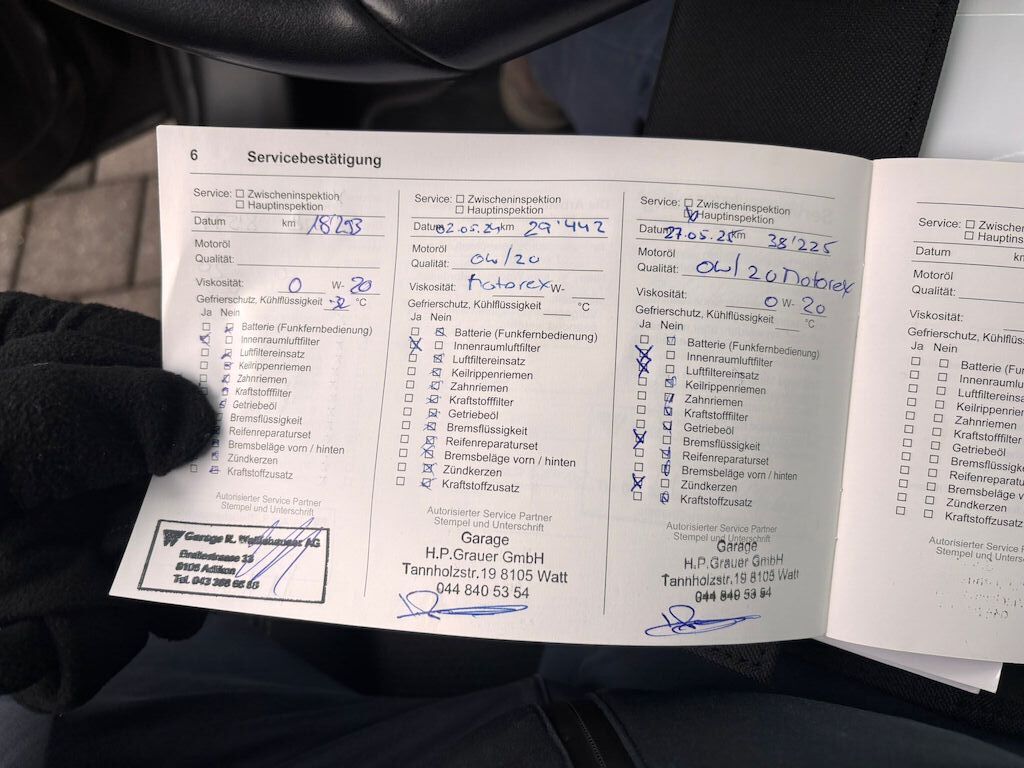 6 Servicebestätigung
Service: Zwischeninspektion
Hauptinspektion
Datum km 18'293
Motoröl
Qualität:
Viskosität: 0 W- 20
Gefrierschutz, Kühlflüssigkeit -32 °C
Ja Nein
Batterie (Funkfernbedienung)
Innenraumluftfilter
Luftfiltereinsatz
Keilrippenriemen
Zahnriemen
Kraftstofffilter
Getriebeöl
Bremsflüssigkeit
Reifenreparaturset
Bremsbeläge vorn / hinten
Zündkerzen
Kraftstoffzusatz
Autorisierter Service Partner
Stempel und Unterschrift
Garage R. AG
8105 Adlikon
Tel. 043
Service: Zwischeninspektion
Hauptinspektion
Datum 02.05.24 km 29'442
Motoröl
Qualität: 0w/20
Viskosität: Motorex W-
Gefrierschutz, Kühlflüssigkeit °C
Ja Nein
Batterie (Funkfernbedienung)
Innenraumluftfilter
Luftfiltereinsatz
Keilrippenriemen
Zahnriemen
Kraftstofffilter
Getriebeöl
Bremsflüssigkeit
Reifenreparaturset
Bremsbeläge vorn / hinten
Zündkerzen
Kraftstoffzusatz
Autorisierter Service Partner
Stempel und Unterschrift
Garage
H.P.Grauer GmbH
Tannholzstr.19 8105 Watt
044 840 53 54
Service: Zwischeninspektion
Hauptinspektion
Datum 27.05.25 km 38'225
Motoröl
Qualität: 0w/20 Motorex
Viskosität: 0 W- 20
Gefrierschutz, Kühlflüssigkeit °C
Ja Nein
Batterie (Funkfernbedienung)
Innenraumluftfilter
Luftfiltereinsatz
Keilrippenriemen
Zahnriemen
Kraftstofffilter
Getriebeöl
Bremsflüssigkeit
Reifenreparaturset
Bremsbeläge vorn / hinten
Zündkerzen
Kraftstoffzusatz
Autorisierter Service Partner
Stempel und Unterschrift
Garage
H.P.Grauer GmbH
Tannholzstr.19 8105 Watt
044 840 53 54
Service: Zwischen
Hauptinsp
Datum km
Motoröl
Qualität:
Viskosität:
Gefrierschutz, Kühlflüss
Ja Nein
Batterie (Fu
Innenraumlu
Luftfiltereins
Keilrippenrie
Zahnriemen
Kraftstofffilte
Getriebeöl
Bremsflüssig
Reifenrepara
Bremsbeläge v
Zündkerzen
Kraftstoffzusatz
Autorisierter Se
Stempel und U